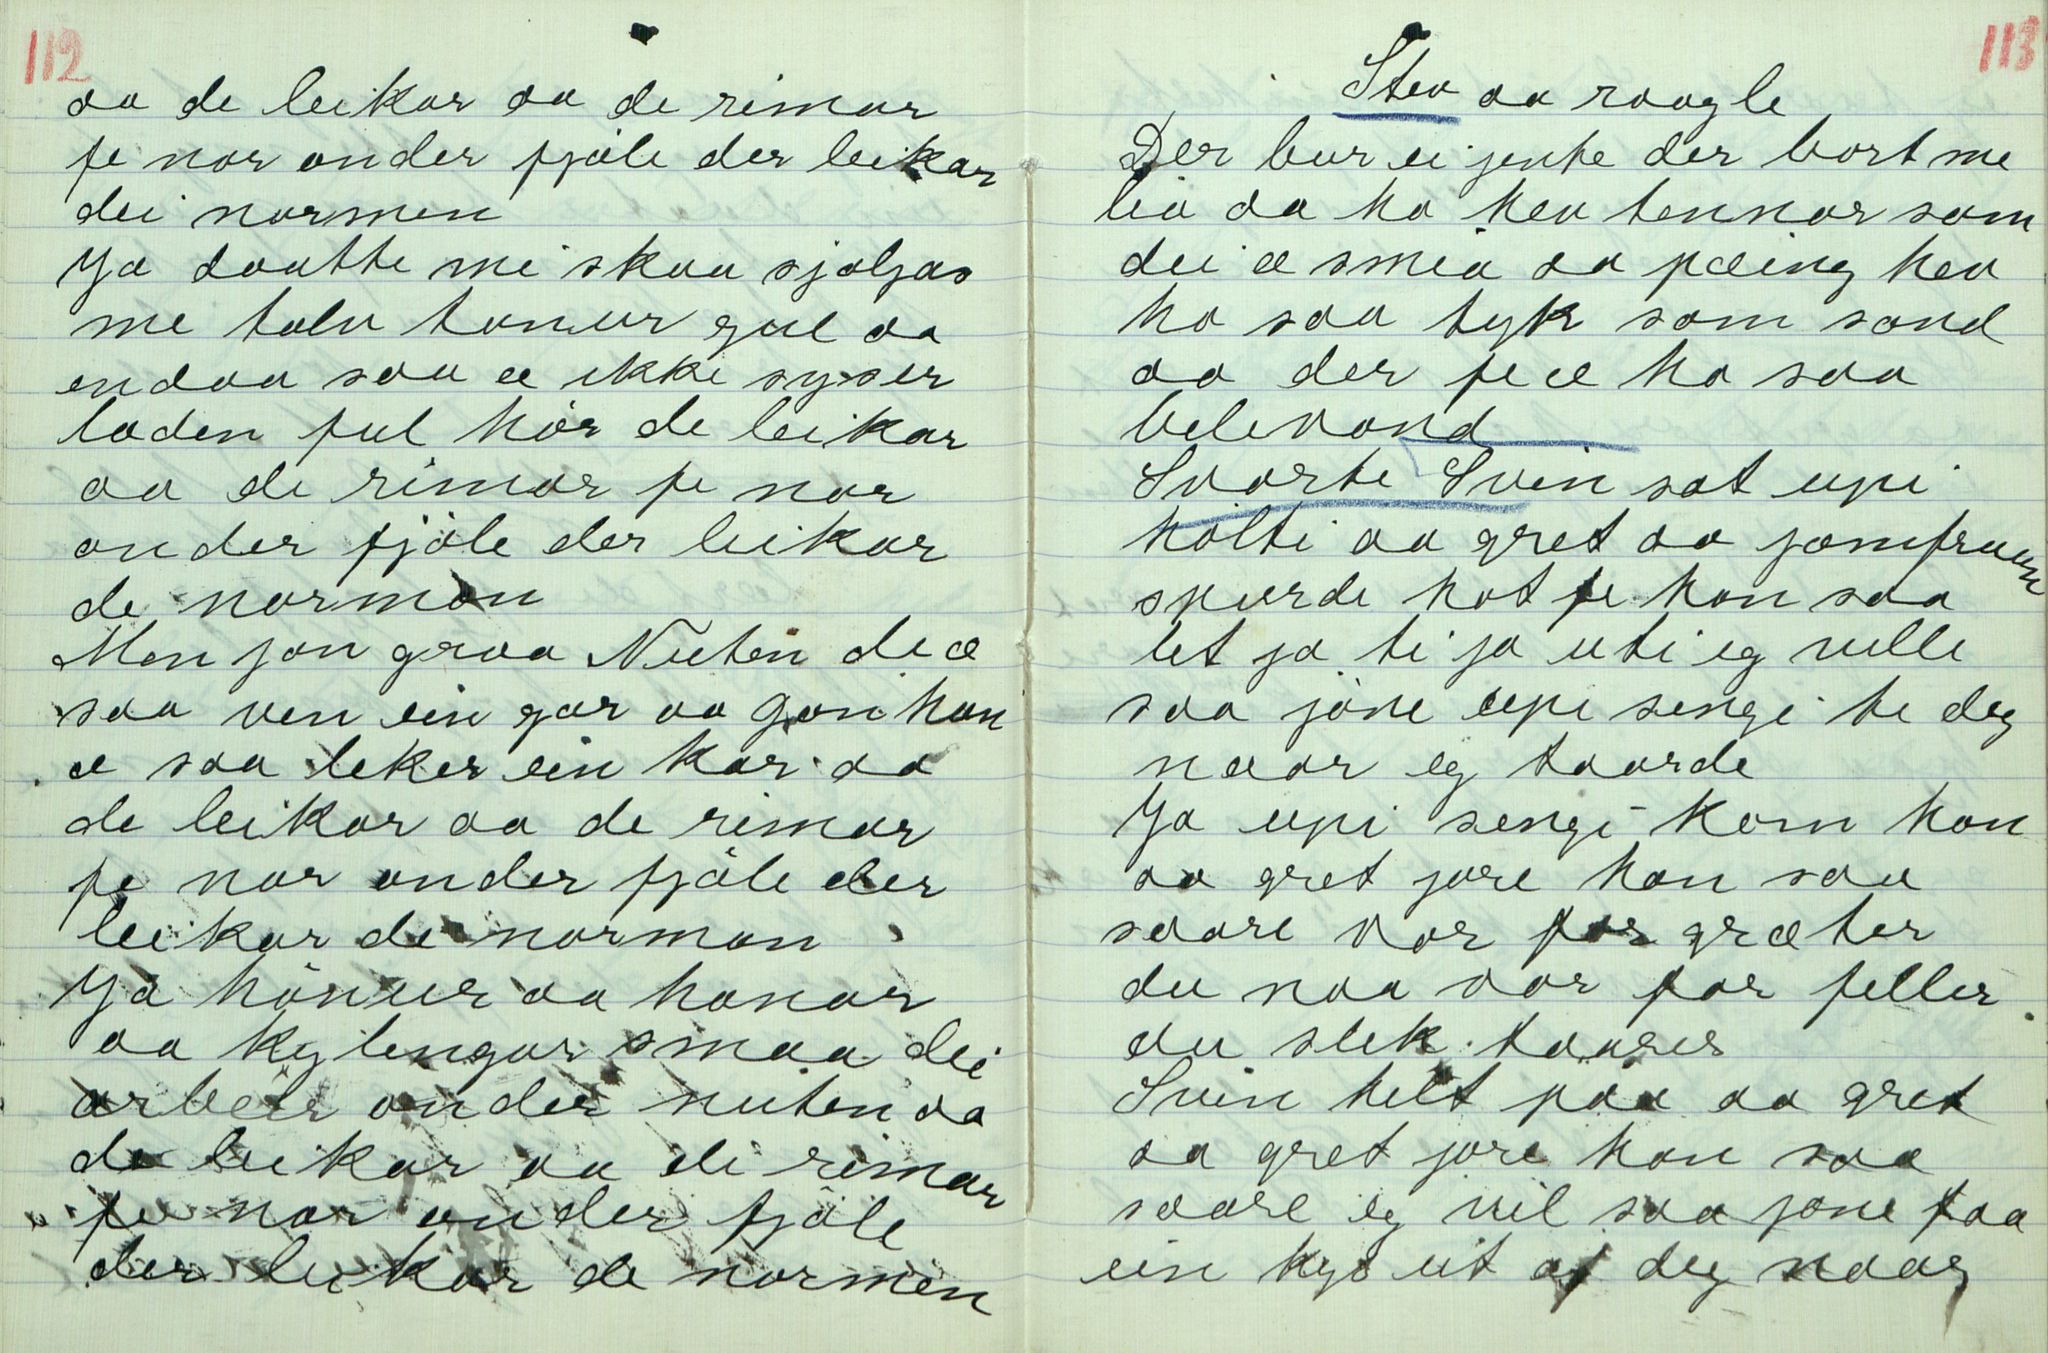 112
aa de leikar aa de rimar
fe nor onder fjöle der leikar
dei normen
Ja daatte mi skaa sjolgas
me tolv tonnur gul aa
endaa saa æ ikki syser
laden ful hör de leikar
aa de rimar fe nor
onder fjöle der leikar
de norman
Men jon graa Nuten de æ
saa ven ein gar aa Jon han
æ saa leker ein kar aa
de leikar aa de rimar
fe nor onder fjöle der
leikar de norman
Ja hönur aa hanar
aa kylingar smaa dei
arbeir onder nuten aa
de leikar aa de rimar
fe nor onder fjöle
der leikar de normen
113
Stev aa raagle
Der bur ei jente der bort me
lia aa ho hev tennar som
dei æ smia aa pæing hev
ho saa tyk som sand
aa der fe æ ho saa
belevand
Svarte Svein sat upi
hölti aa gret aa jomfruen
spurde hot fe han saa
let ja ti ja uti eg ville
saa jöne upi sengi te deg
naar eg taarde
Ja upi sengi kom han
aa gret jore han saa
saare vor for græter
du naa vor for feller
du slik taarer
Svin helt paa aa gret
aa gret jore han saa
saare eg vil saa jone faa
ein kys ut af deg naag